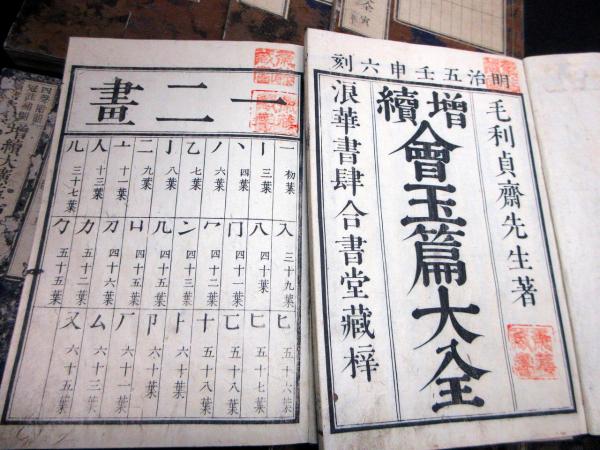 明治五壬申六刻
毛利貞齋先生著
增續會玉篇大全
浪華書肆合書堂藏梓
一二畫
一 初葉
丨 三葉
丶 四葉
丿 六葉
乙 七葉
亅 八葉
二 九葉
亠 十一葉
人 十三葉
儿 三十七葉
入 三十九葉
八 四十葉
冂 四十一葉
冖 四十二葉
冫 四十三葉
几 四十五葉
凵 四十四葉
刀 四十六葉
力 五十二葉
勹 五十五葉
匕 五十六葉
匚 五十七葉
匸 五十八葉
十 五十八葉
卜 六十葉
卩 六十葉
厂 六十一葉
厶 六十三葉
又 六十五葉
增續大廣